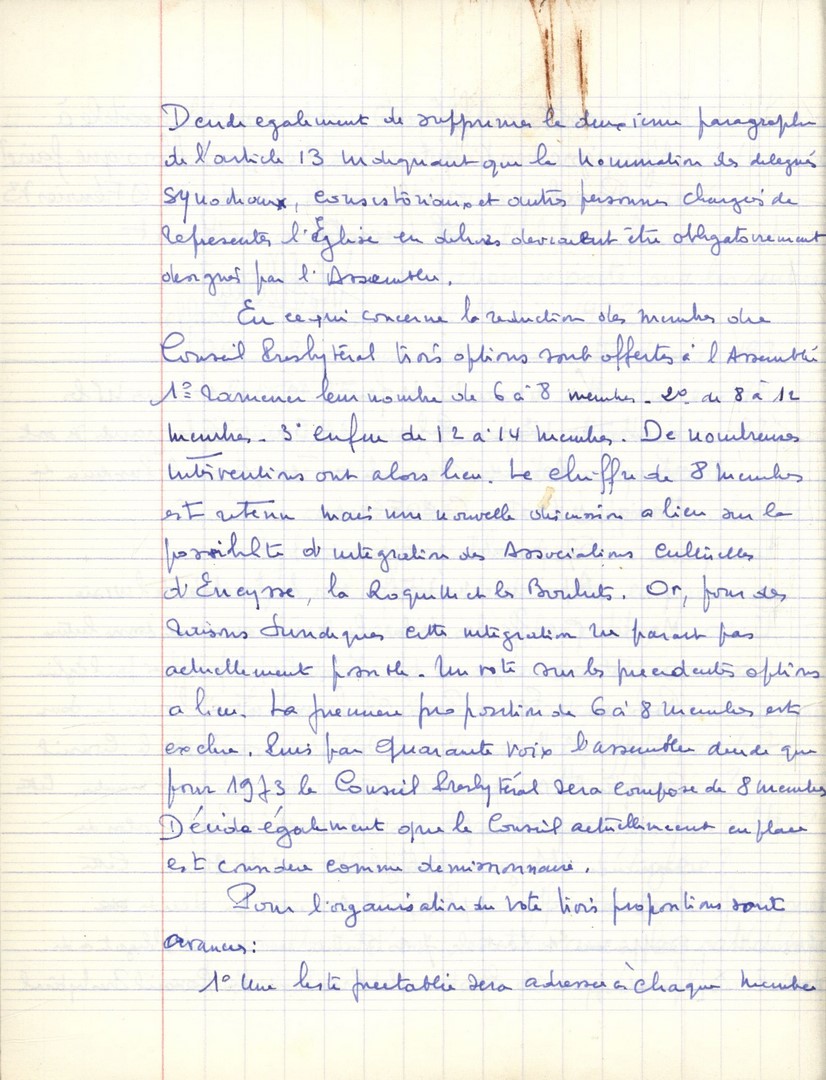 Decide egalement de supprimer le deuxieme paragraphe
de l'article 13 indiquant que la nommation des delegués
synodaux, consistoriaux et autres personnes chargés de
representer l'Église en dehors devraient être obligatoirement
designés par l'Assemblée.
En ce qui concerne la reduction des membres du
Conseil Presbytéral trois options sont offertes à l'Assemblée
1º ramener leur nombre de 6 à 8 membres - 2º de 8 à 12
membres - 3º enfin de 12 à 14 membres. De nombreuses
interventions ont alors lieu. Le chiffre de 8 membres
est retenu mais une nouvelle discussion a lieu sur la
possibilité d'intégration des Associations Cultuelles
d'Eneysse, la Roquille et les Bouhets. Or, pour des
raisons Juridiques cette intégration ne parait pas
actuellement possible. Un vote sur les precedentes options
a lieu. La premiere proposition de 6 à 8 membres est
exclue. Puis par Quarante voix l'assemblée decide que
pour 1973 le Conseil Presbytéral sera composé de 8 membres
Décide également que le Conseil actuellement en place
est considere comme demissionnaire.
Pour l'organisation du vote trois propositions sont
avancées :
1º Une liste preetablie sera adressée à chaque membre